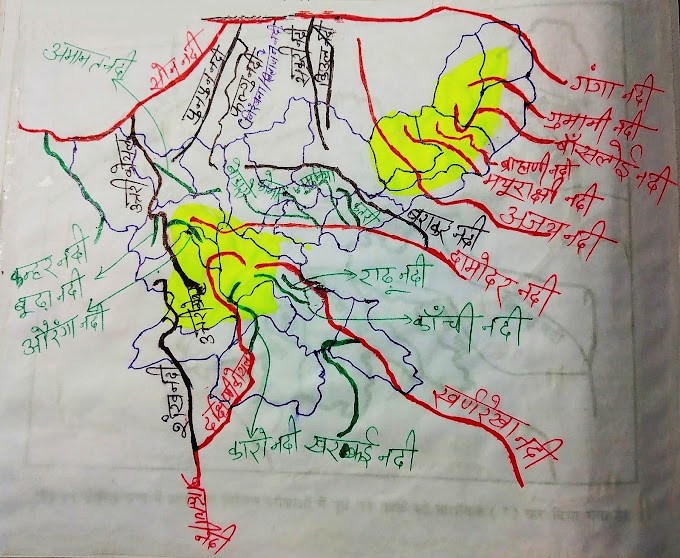 अमानत नदी
सोन नदी
पुनपुन नदी
फल्गु नदी
सकरी नदी
किउल नदी
गंगा नदी
गुमानी नदी
बाँसलोई नदी
ब्राह्मणी नदी
मयुराक्षी नदी
अजय नदी
उत्तरी कोयल
बराकर नदी
दामोदर नदी
कन्हर नदी
बूढ़ा नदी
औरंगा नदी
राढू नदी
काँची नदी
शंख नदी
स्वर्णरेखा नदी
कारो नदी
खरकई नदी
नदी